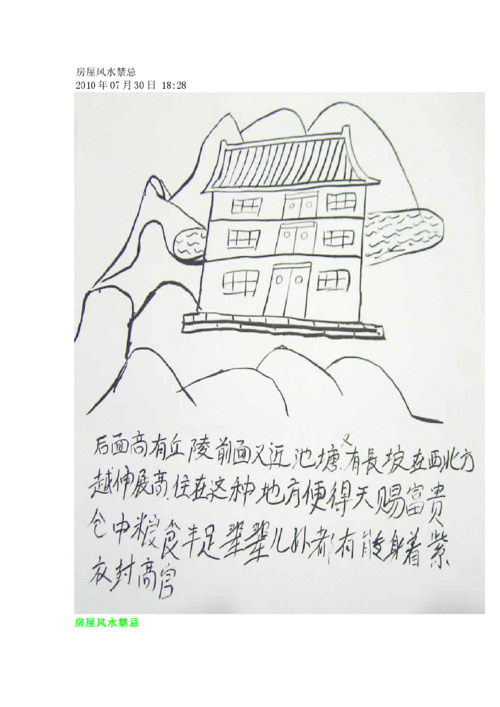 房屋风水禁忌
2010年07月30日 18:28
后面高有丘陵前面又近池塘又有長坡在西北方
越伸展高住在这种地方便得天赐富贵
仓中粮食丰足辈辈儿孙都有能身着紫
衣封高官
房屋风水禁忌